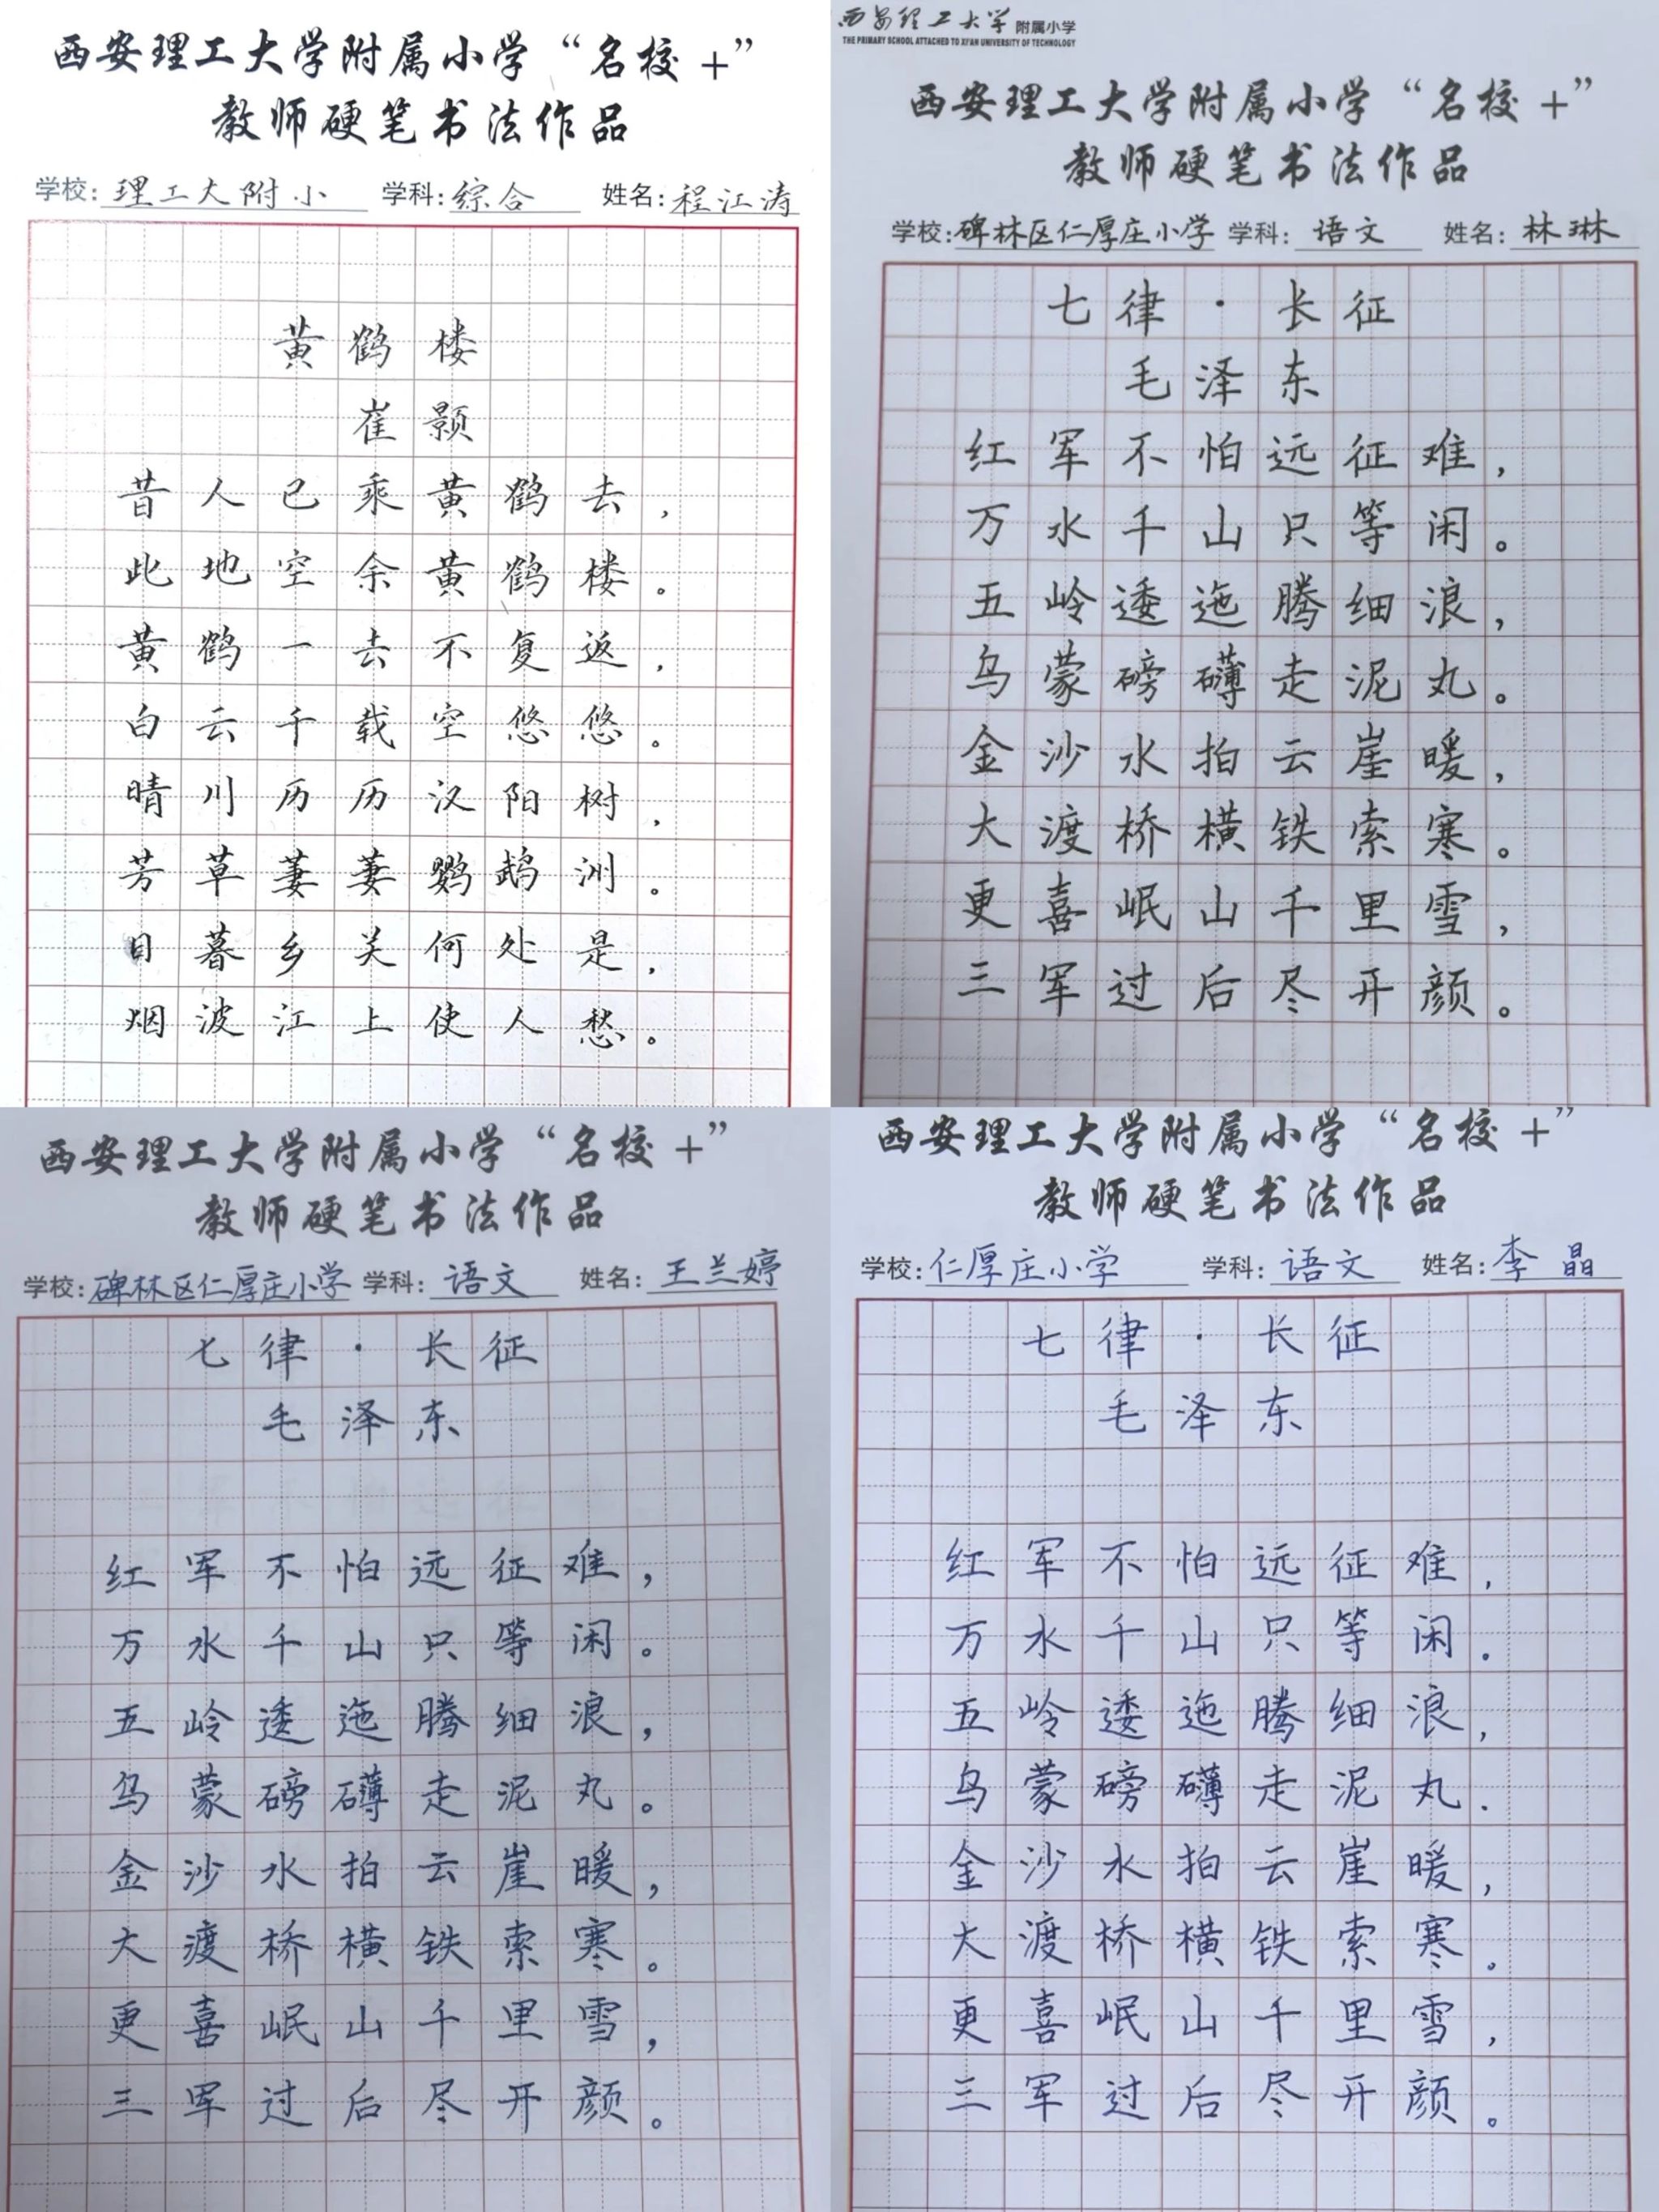 西安理工大学附属小学“名校+”
教师硬笔书法作品
学校:理工大附小 学科:综合 姓名:程江涛
黄鹤楼
崔颢
昔人已乘黄鹤去,
此地空余黄鹤楼。
黄鹤一去不复返,
白云千载空悠悠。
晴川历历汉阳树,
芳草萋萋鹦鹉洲。
日暮乡关何处是,
烟波江上使人愁。
西安理工大学附属小学
THE PRIMARY SCHOOL ATTACHED TO XI'AN UNIVERSITY OF TECHNOLOGY
西安理工大学附属小学“名校+”
教师硬笔书法作品
学校:碑林区仁厚庄小学 学科:语文 姓名:林琳
七律·长征
毛泽东
红军不怕远征难,
万水千山只等闲。
五岭逶迤腾细浪,
乌蒙磅礴走泥丸。
金沙水拍云崖暖,
大渡桥横铁索寒。
更喜岷山千里雪,
三军过后尽开颜。
西安理工大学附属小学“名校+”
教师硬笔书法作品
学校:碑林区仁厚庄小学 学科:语文 姓名:王兰婷
七律·长征
毛泽东
红军不怕远征难,
万水千山只等闲。
五岭逶迤腾细浪,
乌蒙磅礴走泥丸。
金沙水拍云崖暖,
大渡桥横铁索寒。
更喜岷山千里雪,
三军过后尽开颜。
西安理工大学附属小学“名校+”
教师硬笔书法作品
学校:仁厚庄小学 学科:语文 姓名:李晶
七律·长征
毛泽东
红军不怕远征难,
万水千山只等闲。
五岭逶迤腾细浪,
乌蒙磅礴走泥丸.
金沙水拍云崖暖,
大渡桥横铁索寒。
更喜岷山千里雪,
三军过后尽开颜。